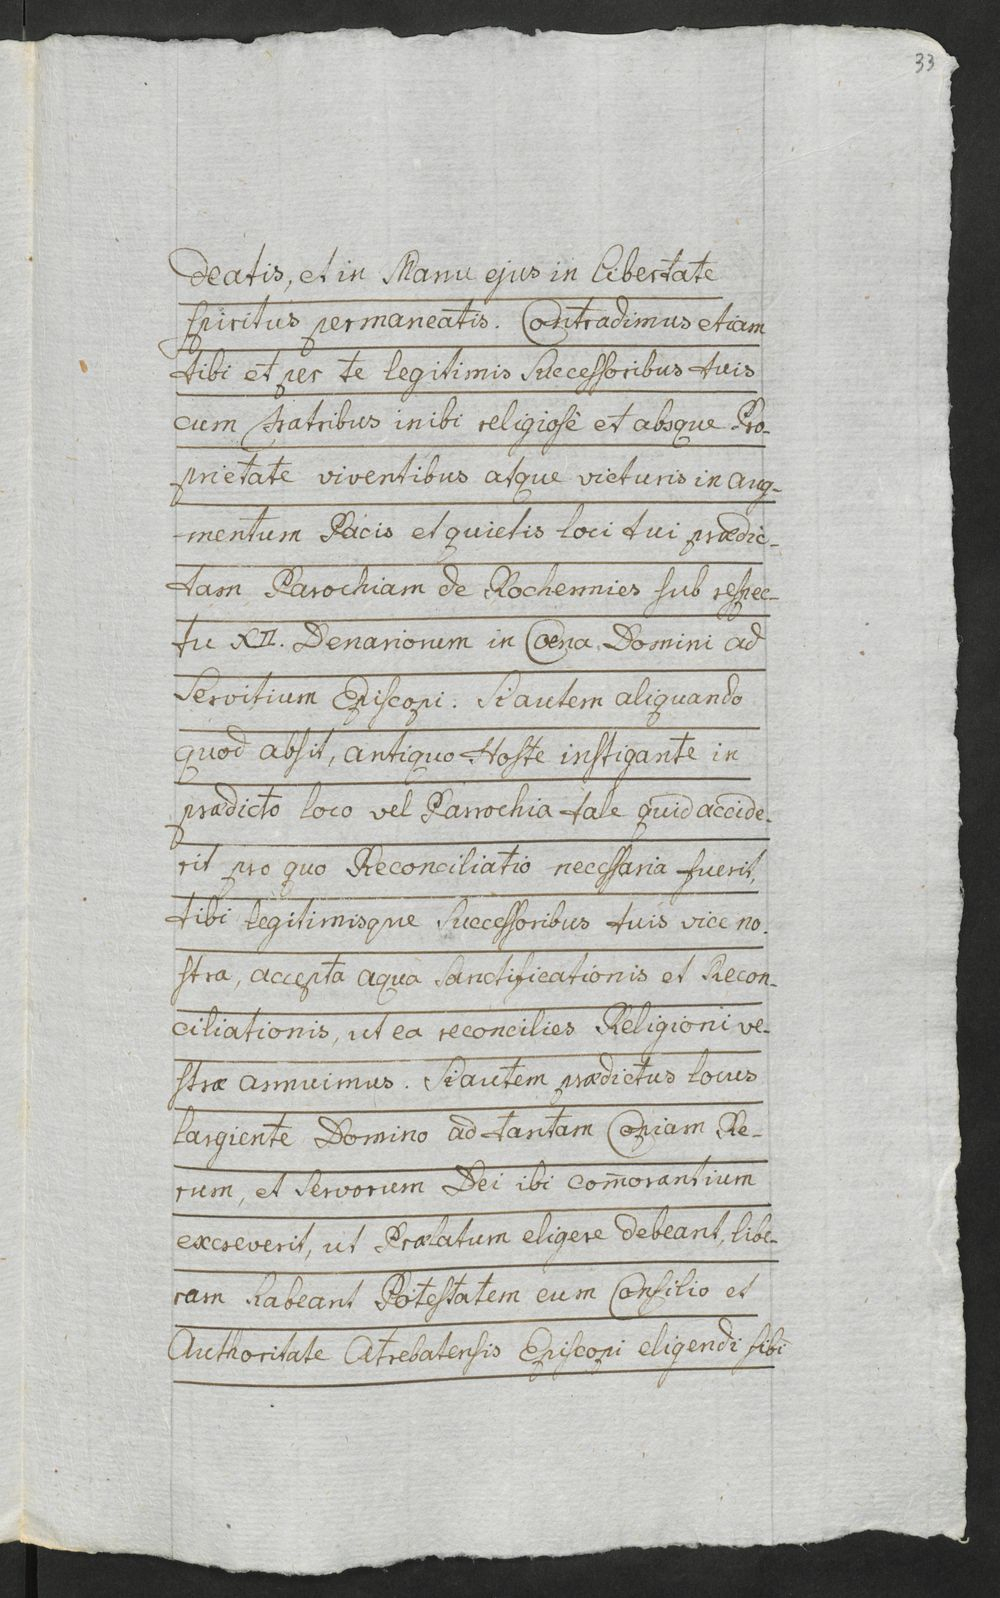 33
deatis, et in Manu ejus in Libertate
spiritus permaneatis. Contradimus etiam
tibi et per te legitimis Successoribus tuis
cum fratribus inibi religiosè et absque Pro-
prietate viventibus atque victuris in aug-
mentum Pacis et quietis loci tui prædic-
tam Parochiam de Rochennies sub respec-
tu XII. Denariorum in Cœna Domini ad
Servitium Episcopi. Si autem aliquando
quod absit, antiquo Hoste instigante in
prædicto loco vel Parrochia tale quid accide-
rit pro quo Reconciliatio necessaria fuerit,
tibi legitimisque Successoribus tuis vice no-
stra, accepta aqua Sanctificationis et Recon-
ciliationis, ut ea reconcilies Religioni ve-
stræ annuimus. Si autem prædictus locus
largiente Domino ad tantam Copiam Re-
rum, et Servorum Dei ibi com̄orantium
excreverit, ut Prælatum eligere debeant, libe-
ram habeant Potestatem cum Consilio et
Authoritate Atrebatensis Episcopi eligendi sibi